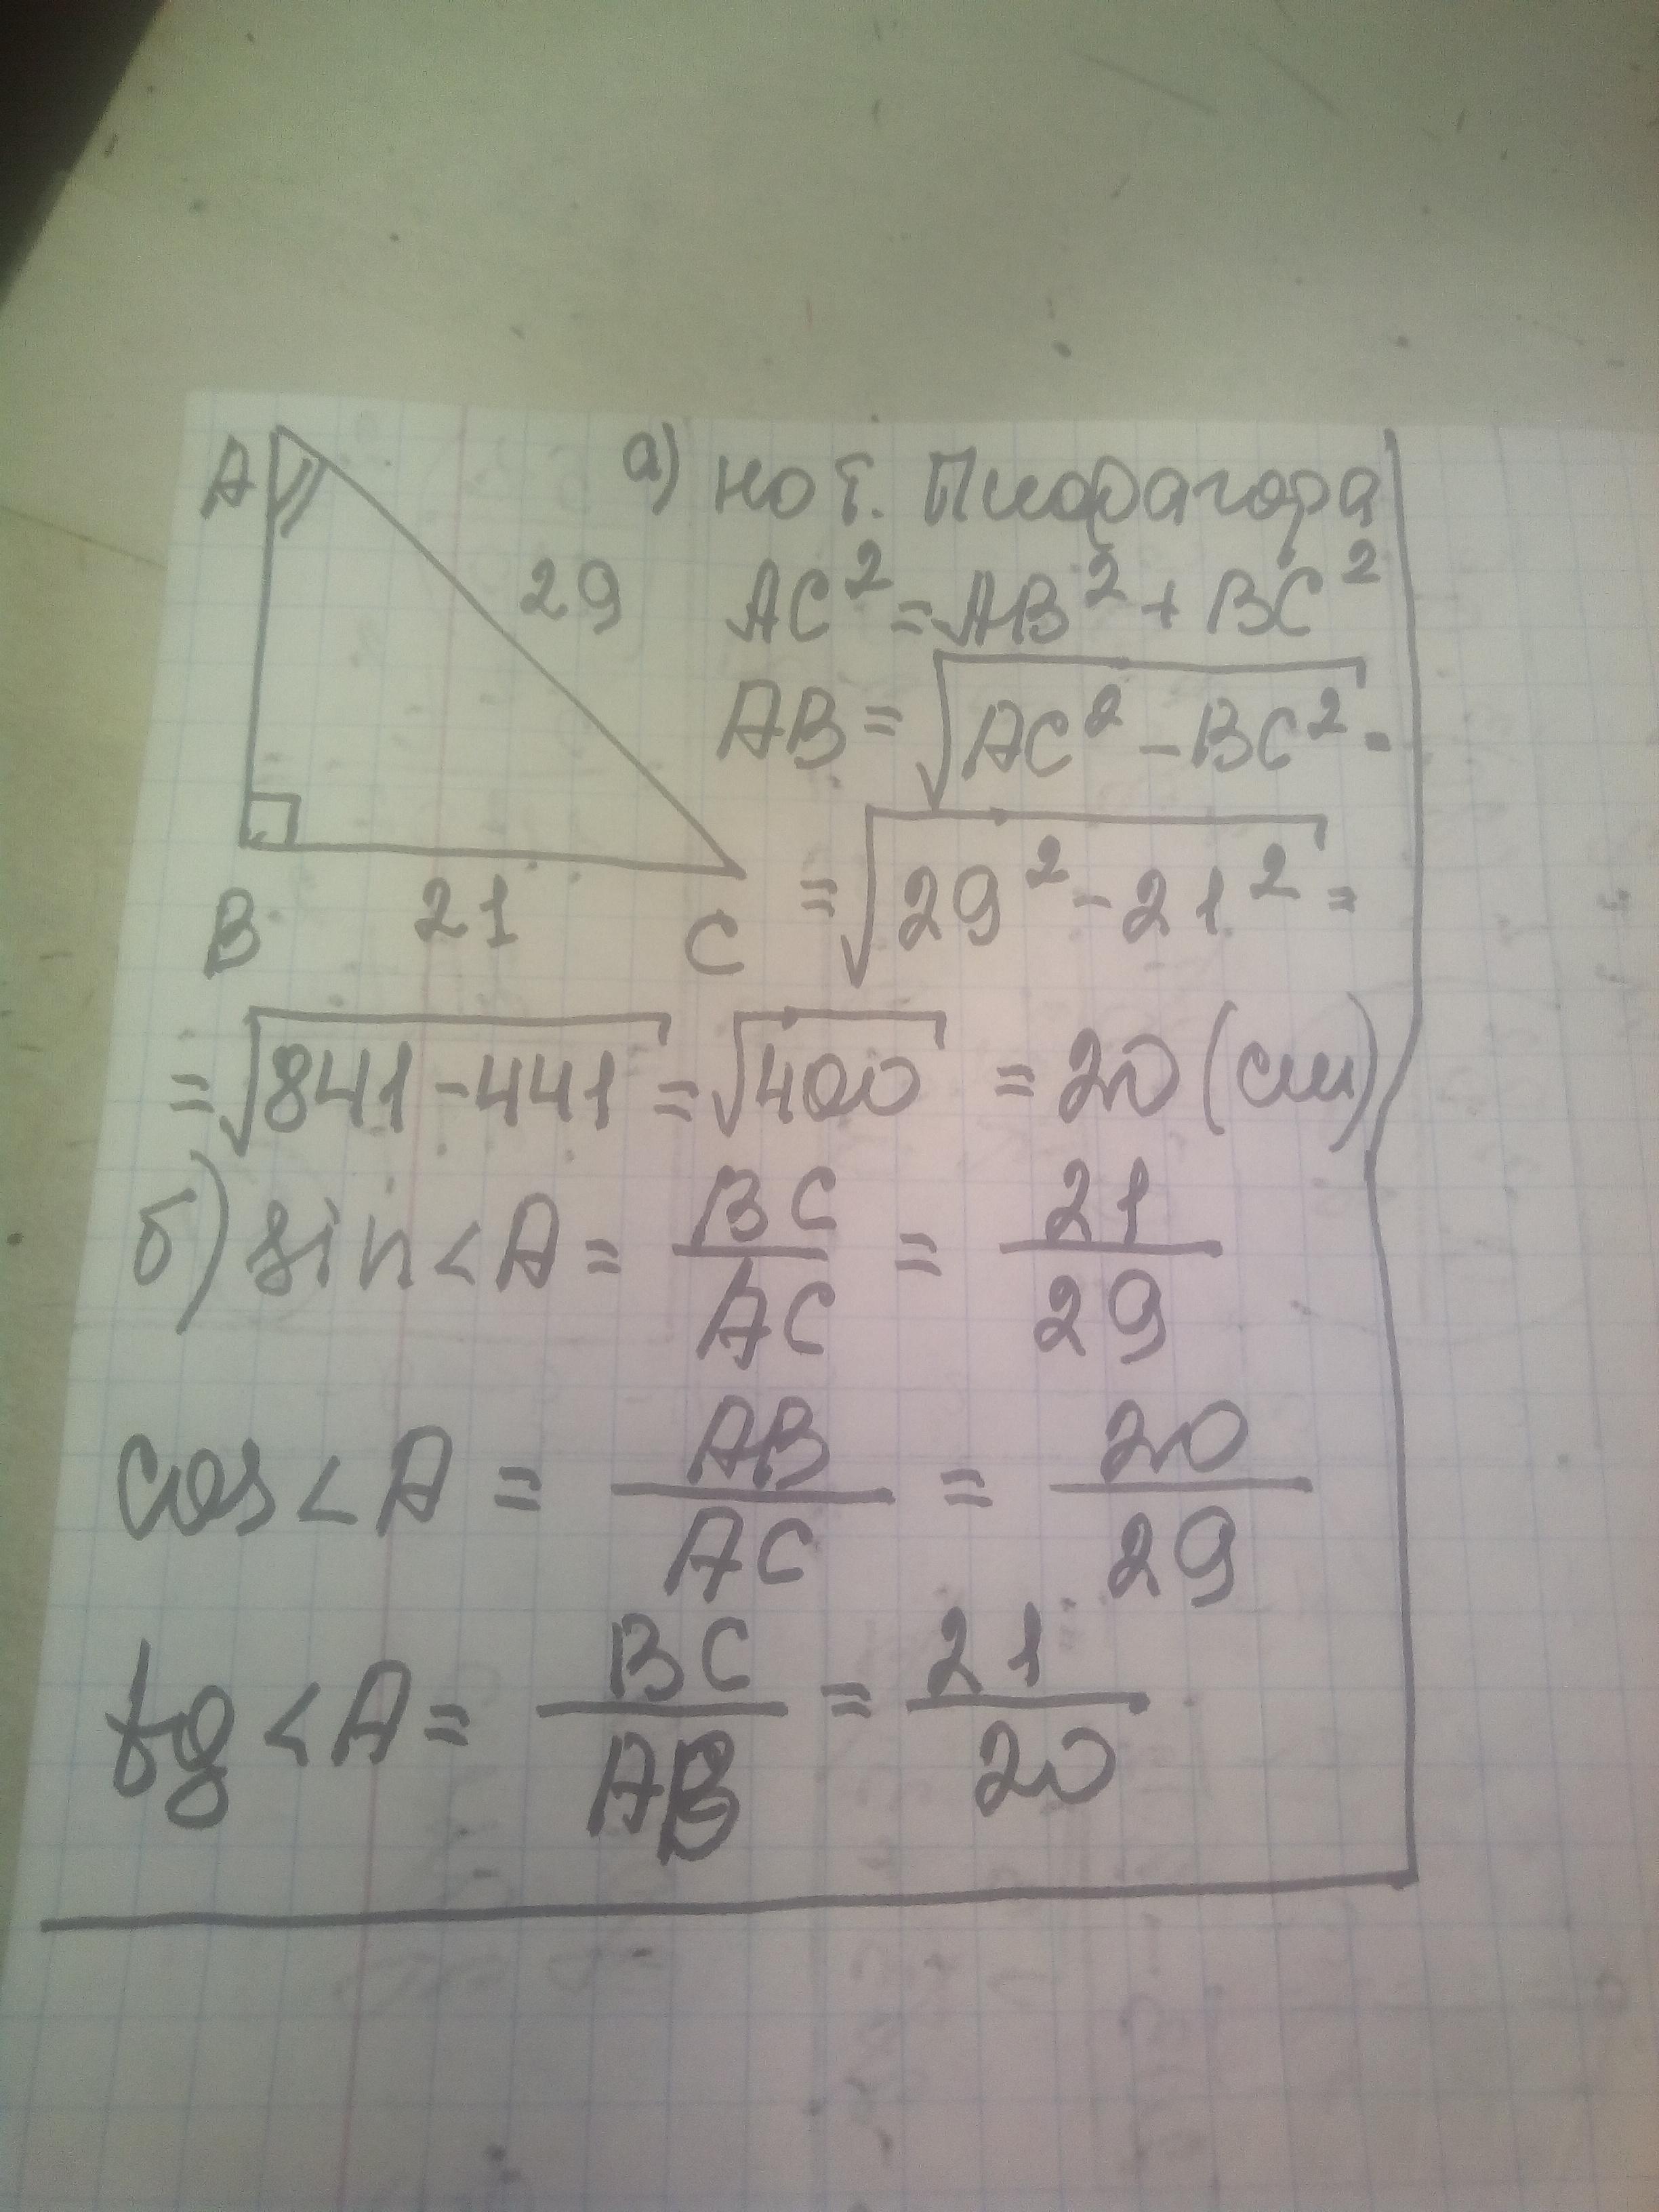 A
29
B
21
C
а) по т. Пифагора
AC² = AB² + BC²
AB = √AC² - BC² =
= √29² - 21² =
= √841 - 441 = √400 = 20 (см)
б) sin < A = BC/AC = 21/29
cos < A = AB/AC = 20/29
tg < A = BC/AB = 21/20